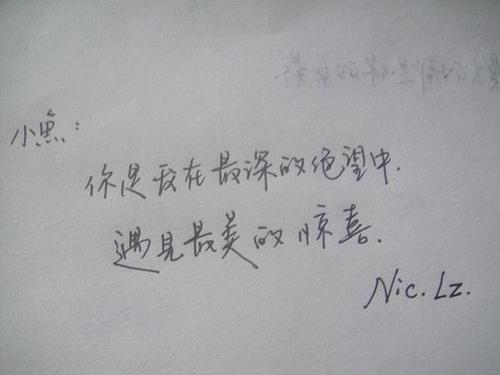 小魚：
你是我在最深的绝望中.
遇見最美的惊喜.
Nic. Lz.